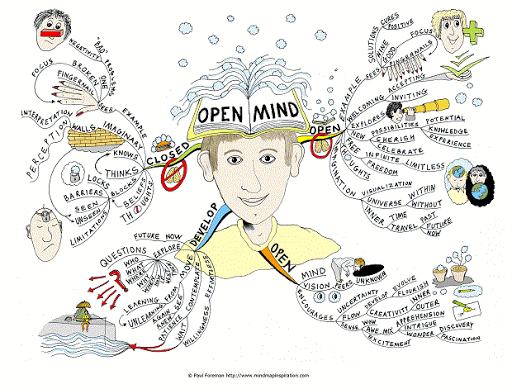 OPEN MIND
CLOSED
THINKS
KNOWS
BLOCKS
BELIEFS
LOCKS
BARRIERS
SEEN
UNSEEN
LIMITATIONS
IMAGINARY
WALLS
PERCEPTION
INTERPRETATION
EXAMPLE
SEES
ONE
BROKEN
FINGERNAIL
FOCUS
"BAD"
PROBLEMS
NEGATIVITY
OPEN
EXAMPLE
SEES
NINE
GOOD
FINGERNAILS
FOCUS
SOLUTIONS
CURES
POSITIVE
WELCOMING
ACCEPTING
INVITING
EXPLORES
NEW
POSSIBILITIES
POTENTIAL
KNOWLEDGE
EXPERIENCE
CHERISH
CELEBRATE
FREE
THOUGHTS
INFINITE
LIMITLESS
FREEDOM
VISUALIZATION
UNIVERSE
WITHIN
WITHOUT
INNER
TIME
TRAVEL
PAST
FUTURE
NOW
DEVELOP
FUTURE NOW
EXPLORE
QUESTIONS
WHO
WHAT
WHERE
WHY
LEARNING
UNLEARNING
FROM
AGAIN
ANEW
PATIENCE
WAIT
CONTEMPLATE
WILLINGNESS
MOVE
OPEN
MIND
VISION
FEEL
UNKNOWN
UNCERTAINTY
FLOW
DEVELOP
EVOLVE
FLOURISH
CREATIVITY
INNER
OUTER
SENSE
WOW
AWE
MIX
APPREHENSION
INTRIGUE
EXCITEMENT
WONDER
DISCOVERY
FASCINATION
© Paul Foreman http://www.mindmapinspiration.com